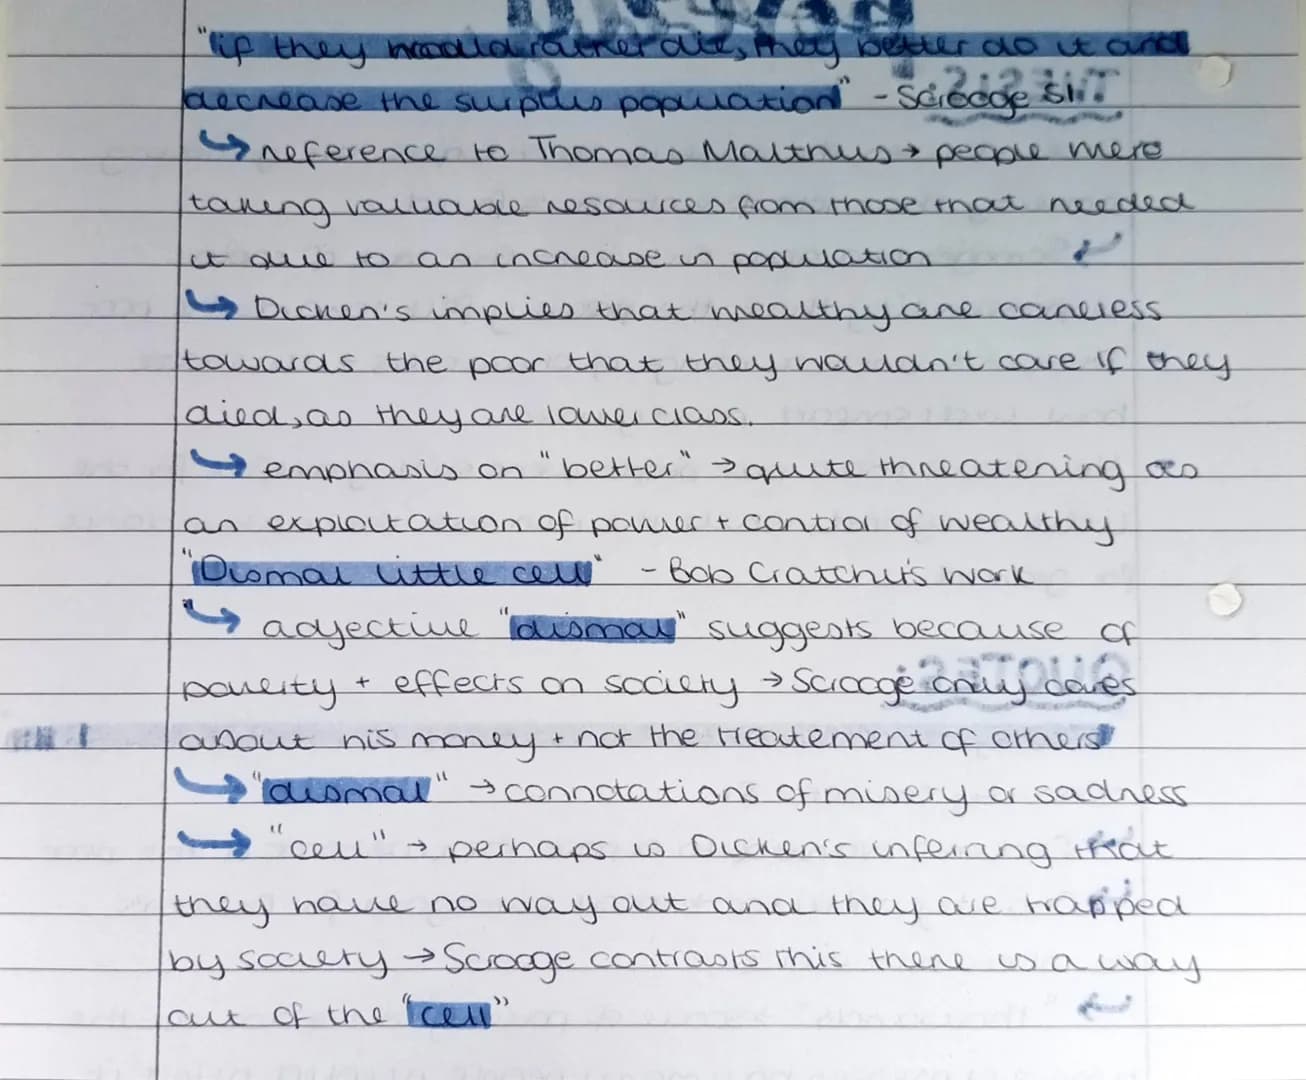 "if they would rather die, they better do it and
decrease the surplus population" - Scrooge S1
↳ reference to Thomas Malthus → people were
taking valuable resources from those that needed
it due to an increase in population
↳ Dicken's implies that wealthy are careless
towards the poor that they wouldn't care if they
died, as they are lower class.
↳ emphasis on "better" → quite threatening as
an exploitation of power + control of wealthy
"Dismal little cell" - Bob Cratchit's work
↳ adjective "dismal" suggests because of
poverty + effects on society → Scrooge only cares
about his money + not the treatement of others
↳ "dismal" → connotations of misery or sadness
→ "cell" → perhaps is Dicken's inferring that
they have no way out and they are trapped
by society → Scrooge contrasts this there is a way
out of the "cell"